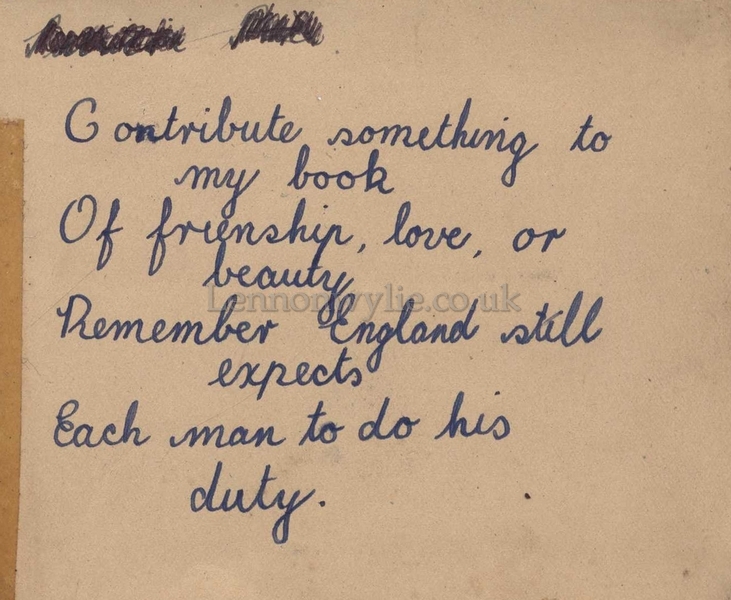 Contribute something to
my book
Of frienship, love, or
beauty
Lennonwylie.co.uk
Remember England still
expects
Each man to do his
duty.